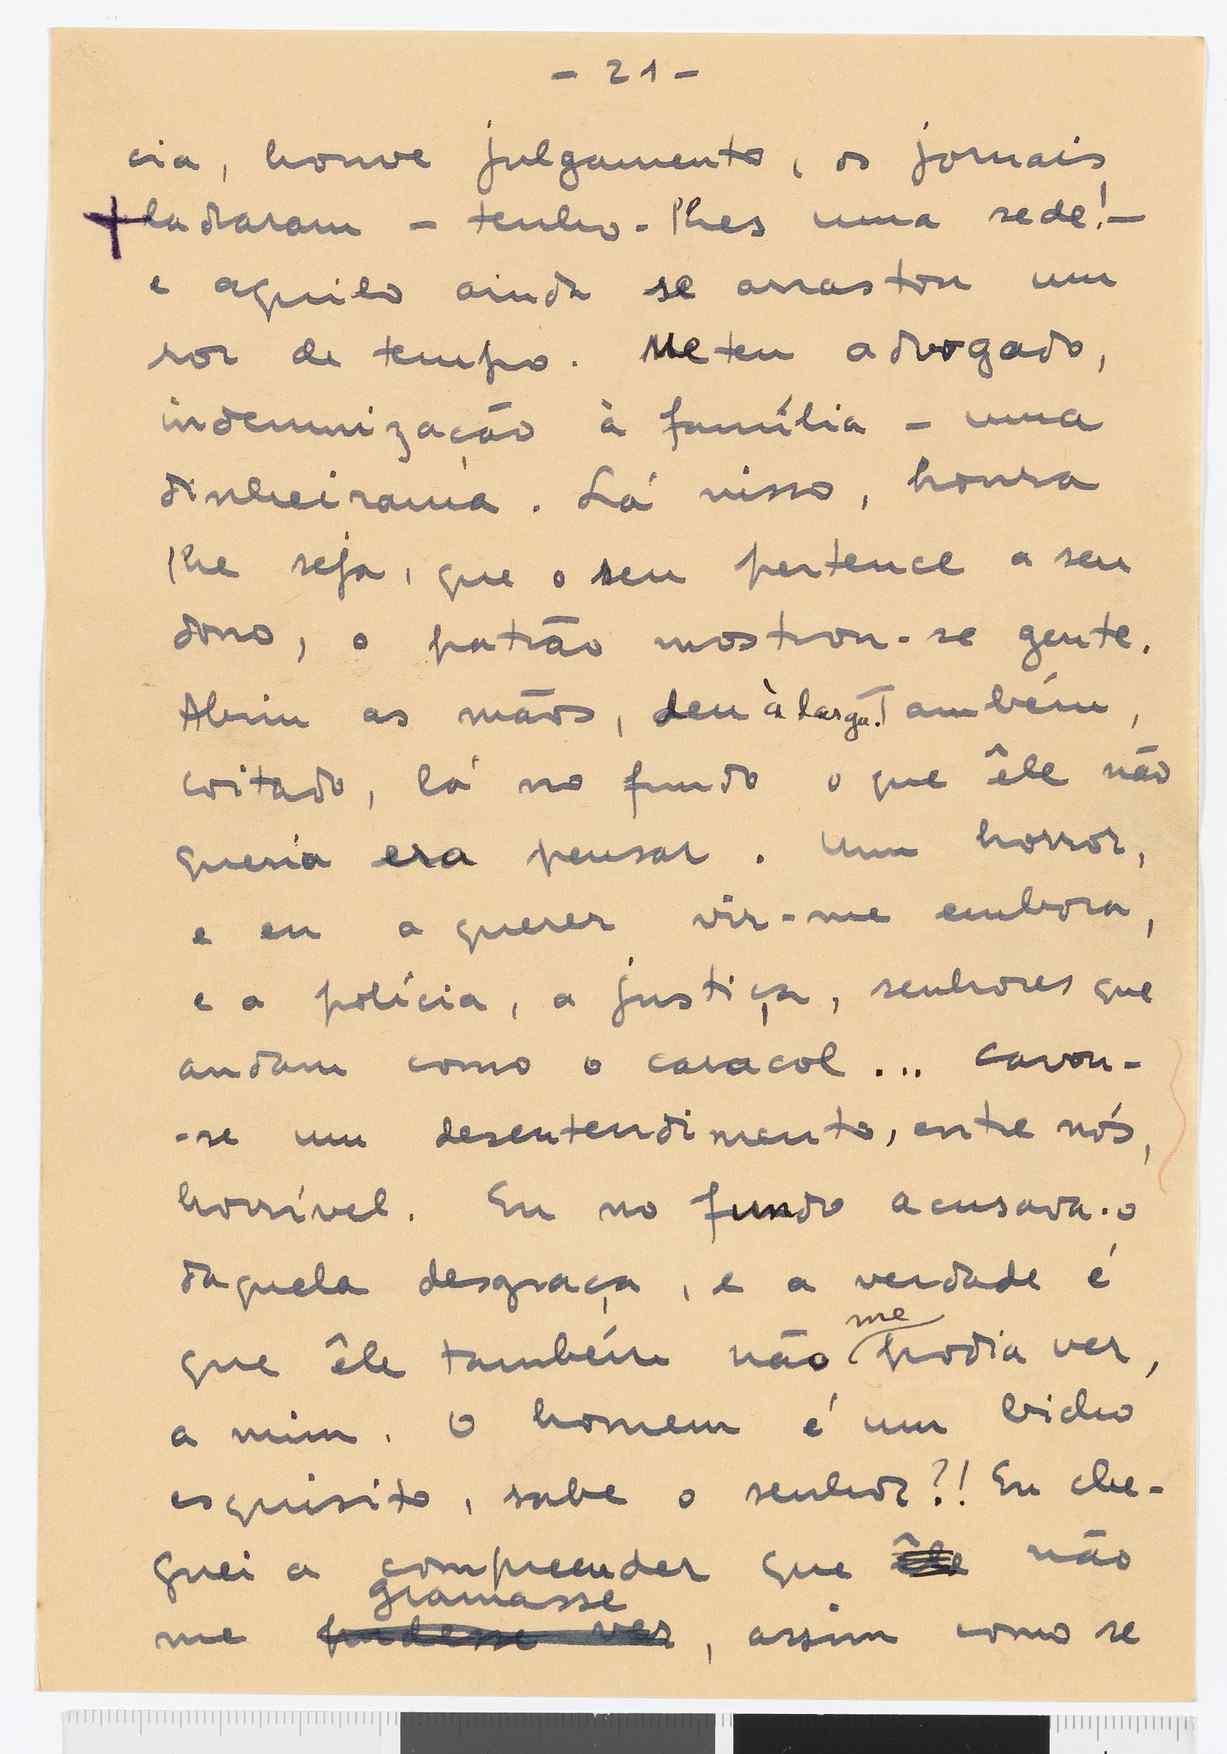 - 21 -
cia, houve julgamento, os jornais
ladraram - tenho-lhes uma sede! -
e aquilo ainda se arrastou um
ror de tempo. Meteu advogado,
indemnização à família - uma
dinheirama. Lá nisso, honra
lhe seja, que o seu pertence a seu
dono, o patrão mostrou-se gente.
Abriu as mãos, deu à larga. Também,
coitado, lá no fundo o que êle não
queria era pensar. Um horror,
e eu a querer vir-me embora,
e a polícia, a justiça, senhores que
andam como o caracol... Cavou-
-se um desentendimento, entre nós,
horrível. Eu no fundo acusava-o
daquela desgraça, e a verdade é
me
que êle também não podia ver,
a mim. O homem é um bicho
esquisito, sabe o senhor?! Eu che-
guei a compreender que êle não
gramasse
me pudesse ver, assim como se